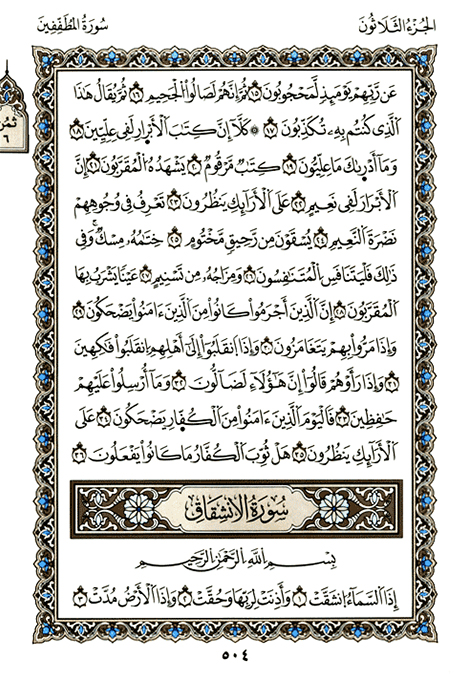 الجزء الثلاثون
سورة المطففين
عَن رَّبِّهِمْ يَوْمَئِذٍ لَّمَحْجُوبُونَ ١٥ ثُمَّ إِنَّهُمْ لَصَالُوا۟ الْجَحِيمِ ١٦ ثُمَّ يُقَالُ هَٰذَا
الَّذِى كُنتُم بِهِۦ تُكَذِّبُونَ ١٧ ۞ كَلَّآ إِنَّ كِتَٰبَ الْأَبْرَارِ لَفِى عِلِّيِّينَ ١٨
وَمَآ أَدْرَىٰكَ مَا عِلِّيُّونَ ١٩ كِتَٰبٌ مَّرْقُومٌ ٢٠ يَشْهَدُهُ الْمُقَرَّبُونَ ٢١ إِنَّ
الْأَبْرَارَ لَفِى نَعِيمٍ ٢٢ عَلَى الْأَرَآئِكِ يَنظُرُونَ ٢٣ تَعْرِفُ فِى وُجُوهِهِمْ
نَضْرَةَ النَّعِيمِ ٢٤ يُسْقَوْنَ مِن رَّحِيقٍ مَّخْتُومٍ ٢٥ خِتَٰمُهُۥ مِسْكٌ ۚ وَفِى
ذَٰلِكَ فَلْيَتَنَافَسِ الْمُتَنَٰفِسُونَ ٢٦ وَمِزَاجُهُۥ مِن تَسْنِيمٍ ٢٧ عَيْنًا يَشْرَبُ بِهَا
الْمُقَرَّبُونَ ٢٨ إِنَّ الَّذِينَ أَجْرَمُوا۟ كَانُوا۟ مِنَ الَّذِينَ ءَامَنُوا۟ يَضْحَكُونَ ٢٩
وَإِذَا مَرُّوا۟ بِهِمْ يَتَغَامَزُونَ ٣٠ وَإِذَا انقَلَبُوٓا۟ إِلَىٰٓ أَهْلِهِمُ انقَلَبُوا۟ فَكِهِينَ
٣١ وَإِذَا رَأَوْهُمْ قَالُوٓا۟ إِنَّ هَٰٓؤُلَآءِ لَضَآلُّونَ ٣٢ وَمَآ أُرْسِلُوا۟ عَلَيْهِمْ
حَٰفِظِينَ ٣٣ فَالْيَوْمَ الَّذِينَ ءَامَنُوا۟ مِنَ الْكُفَّارِ يَضْحَكُونَ ٣٤ عَلَى
الْأَرَآئِكِ يَنظُرُونَ ٣٥ هَلْ ثُوِّبَ الْكُفَّارُ مَا كَانُوا۟ يَفْعَلُونَ ٣٦
سُورَةُ الِانشِقَاقِ
بِسْمِ اللَّهِ الرَّحْمَٰنِ الرَّحِيمِ
إِذَا السَّمَآءُ انشَقَّتْ ١ وَأَذِنَتْ لِرَبِّهَا وَحُقَّتْ ٢ وَإِذَا الْأَرْضُ مُدَّتْ ٣
٥٠٤